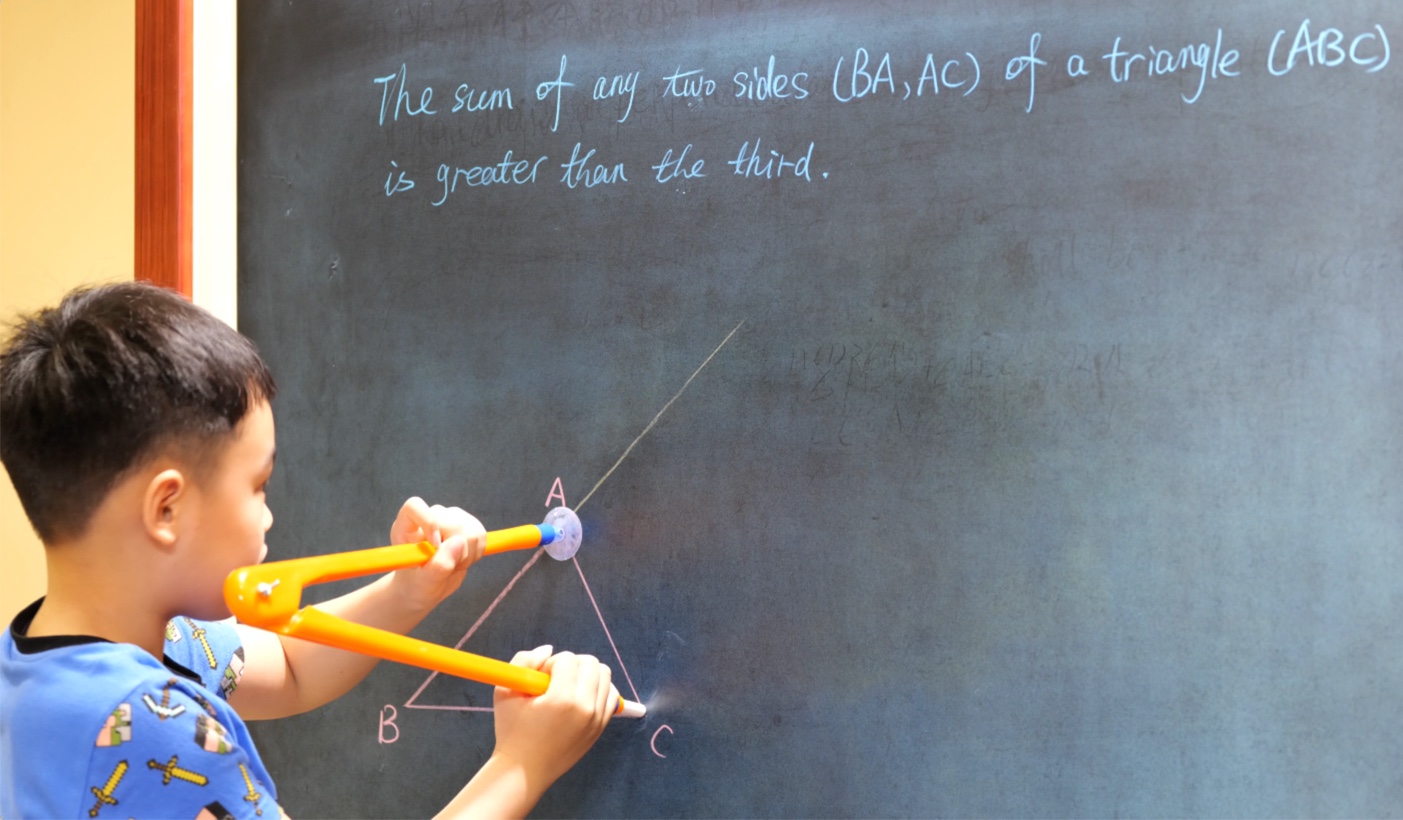 The sum of any two sides (BA, AC) of a triangle (ABC)
is greater than the third.
A
B
C